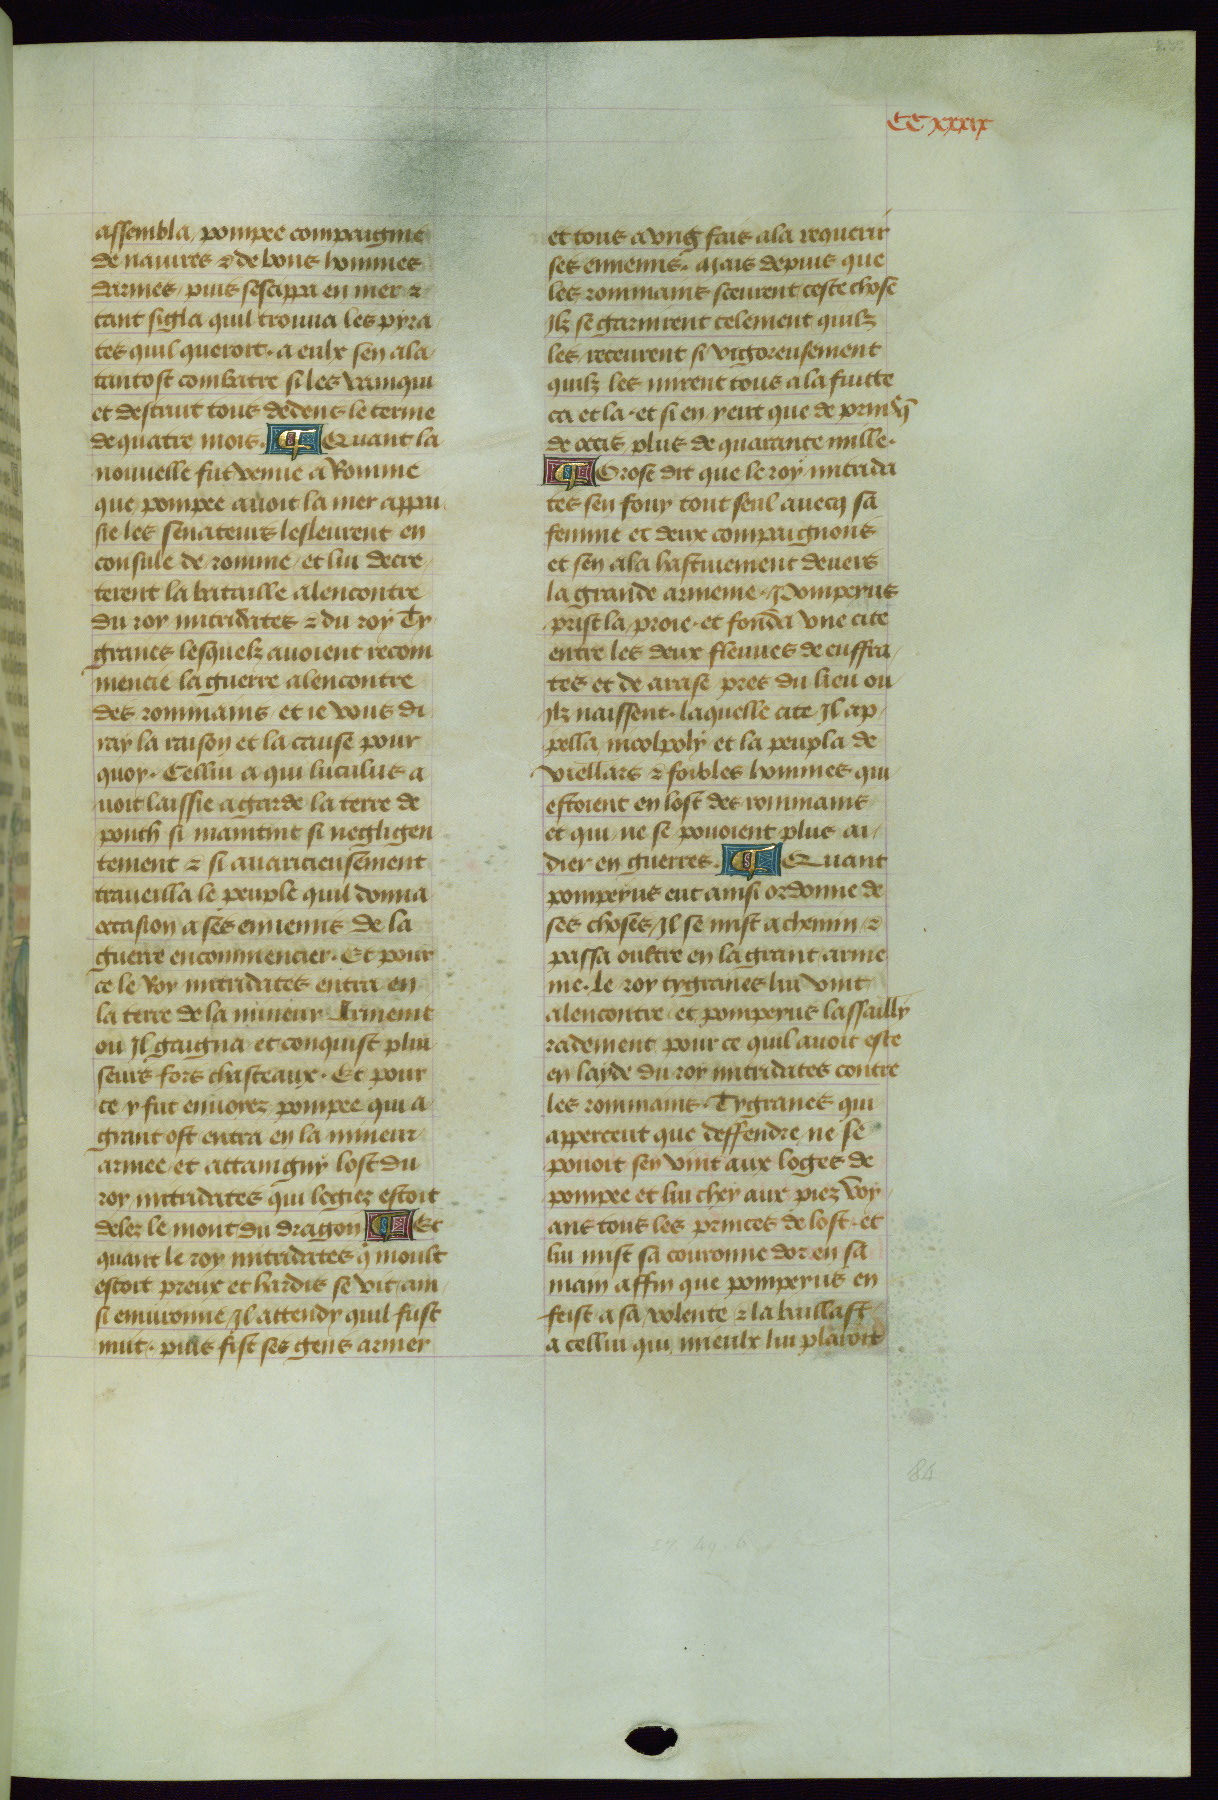 CCxxxix
assembla pompee compaignie
de navires & de bons hommes
darmes puis sescappa en mer &
tant sigla quil trouva les pyra
tes quil queroit. a eulx sen ala
tantost combatre si les vainqui
et destruit tous dedens le terme
de quatre mois. ¶ Quant la
nouvelle fut venue a Romme
que pompee avoit la mer appai
sie les senateurs lesleurent en
consule de romme et lui decre
terent la bataille alencontre
du roy mitridates & du roy Ty
granes lesquelz avoient recom
mencie la guerre alencontre
des rommains et ie vous di
ray la raison et la cause pour
quoy. Cellui a qui luculus a
voit laissie a garde la terre de
ponth si maintint si negligen
tement & si avaricieusement
traveilla le peuple quil donna
occasion a ses ennemis de la
guerre encommencier. Et pour
ce le Roy mitridates entra en
la terre de la mineur Armenie
ou Il gaigna et conquist plui
seurs fors chasteaux. Et pour
ce y fut envoyez pompee qui a
grant ost entra en la mineur
armee et attaingny lost du
roy mitridates qui logiez estoit
delez le mont du dragon ¶ Et
quant le roy mitridates q̇ moult
estoit preux et hardis se vit ain
si environne Il attendy quil fust
nuit. puis fist ses gens armer
et tous a vng fais ala requerir
ses ennemis. Mais depuis que
les rommains sceurent ceste chose
Ilz se garnirent telement quilz
les receurent si vigoreusement
quilz les mirent tous a la fuitte
ca et la. et si en y eut que de prins q̄
de occis plus de quarante mille.
¶ Orose dit que le roy mitrida
tes sen fouy tout seul avecq sa
femme et deux compaignons
et sen ala hastivement devers
la grande armenie. Pompeyus
prist la proie et fonda vne cite
entre les deux fleuves de euffra
tes et de arase pres du lieu ou
Ilz naissent. laquelle cite Il ap
pella nicolpoly et la peupla de
viellars & foibles hommes qui
estoient en lost des rommains
et qui ne se povoient plus ai
dier en guerres. ¶ Quant
pompeyus eut ainsi ordonne de
ses choses Il se mist a chemin &
passa oultre en la grant arme
nie. le roy tygranes lui vint
alencontre et pompeyus lassailly
radement pour ce quil avoit este
en layde du roy mitridates contre
les rommains. Tygranes qui
apperceut que deffendre ne se
povoit sen vint aux loges de
pompee et lui chey aux piez voy
ans tous les princes de lost. et
lui mist sa couronne dor en sa
main affin que pompeyus en
feist a sa volente & la baillast
a cellui qui mieulx lui plairoit
84